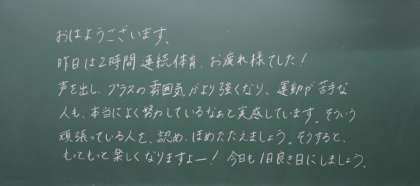 おはようございます。
昨日は2時間連続体育、お疲れ様でした!
声を出し、プラスの雰囲気がより強くなり、運動が苦手な
人も、本当によく努力しているなぁと実感しています。そういう
頑張っている人を、認め、ほめたたえましょう。そうすると、
もっともっと楽しくなりますよー!今日も1日良き日にしましょう。